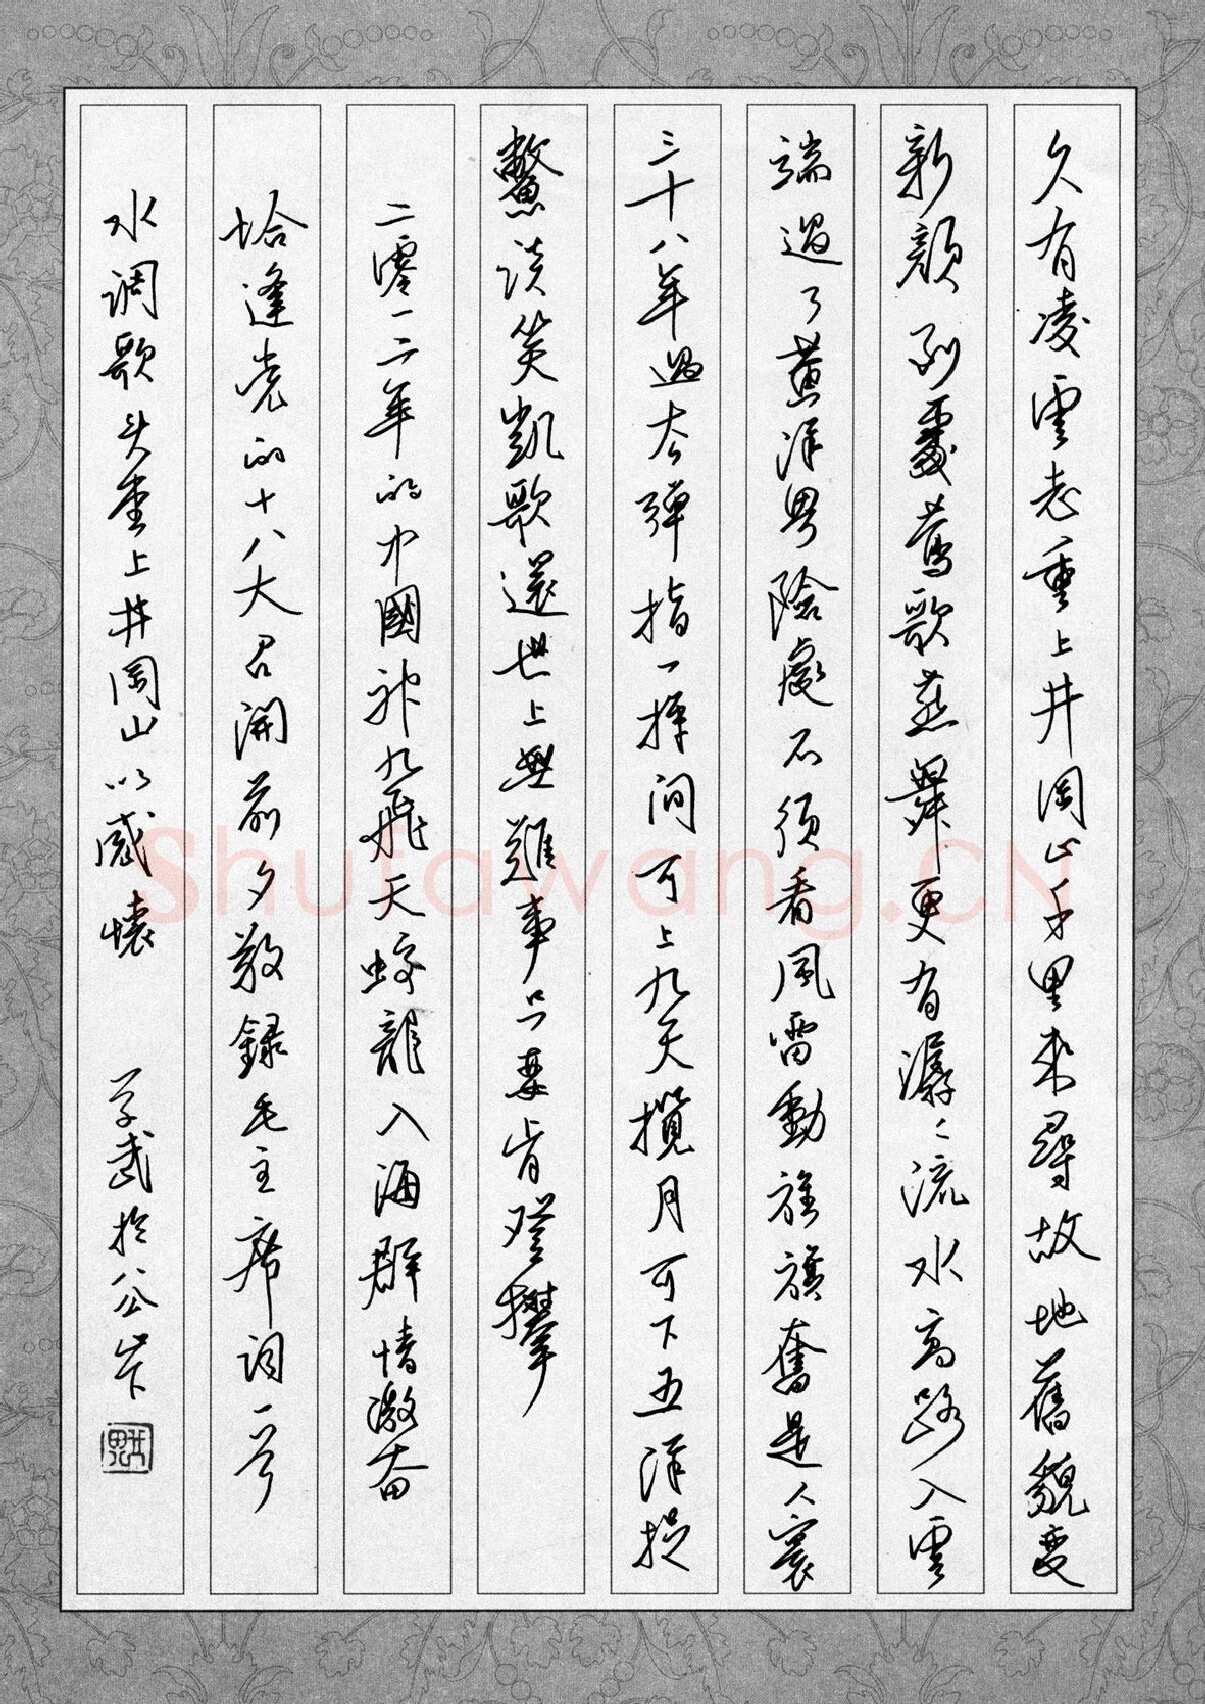 久有凌雲志重上井岡山千里來尋故地舊貌變
新顏到處鶯歌燕舞更有潺〻流水高路入雲
端過了黃洋界險處不須看風雷動旌旗奮是人寰
三十八年過去彈指一揮间可上九天攬月可下五洋捉
鱉談笑凱歌還世上無難事只要肯登攀
二零一二年的中國神九飛天蛟龍入海群情激奋
恰逢党的十八大召開前夕敬録毛主席词一首
水调歌头重上井岡山以感懷 学武於八公山下
Shufawang.CN